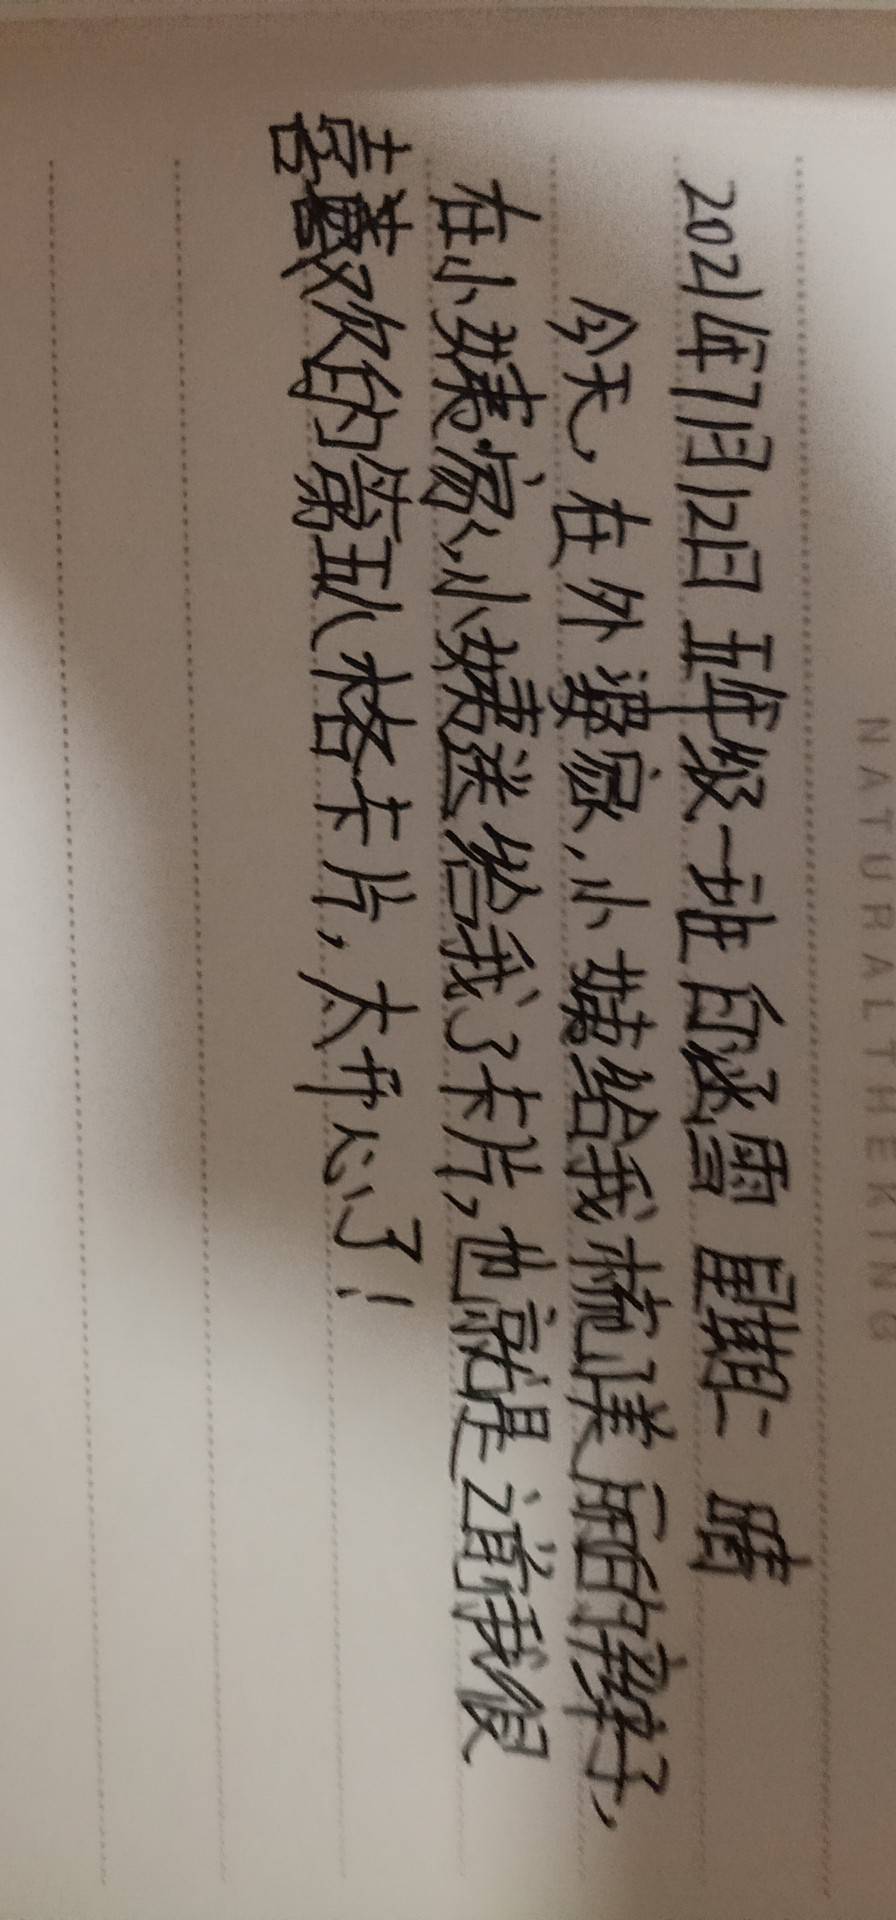 NATURALTHEKING
2021年7月12日 五年级一班 白涵雪 星期二 晴
今天，在外婆家，小姨给我梳美丽的辫子，
在小姨家，小姨送给我了卡片，也就是之前我很
喜欢的第五人格卡片，太开心了！